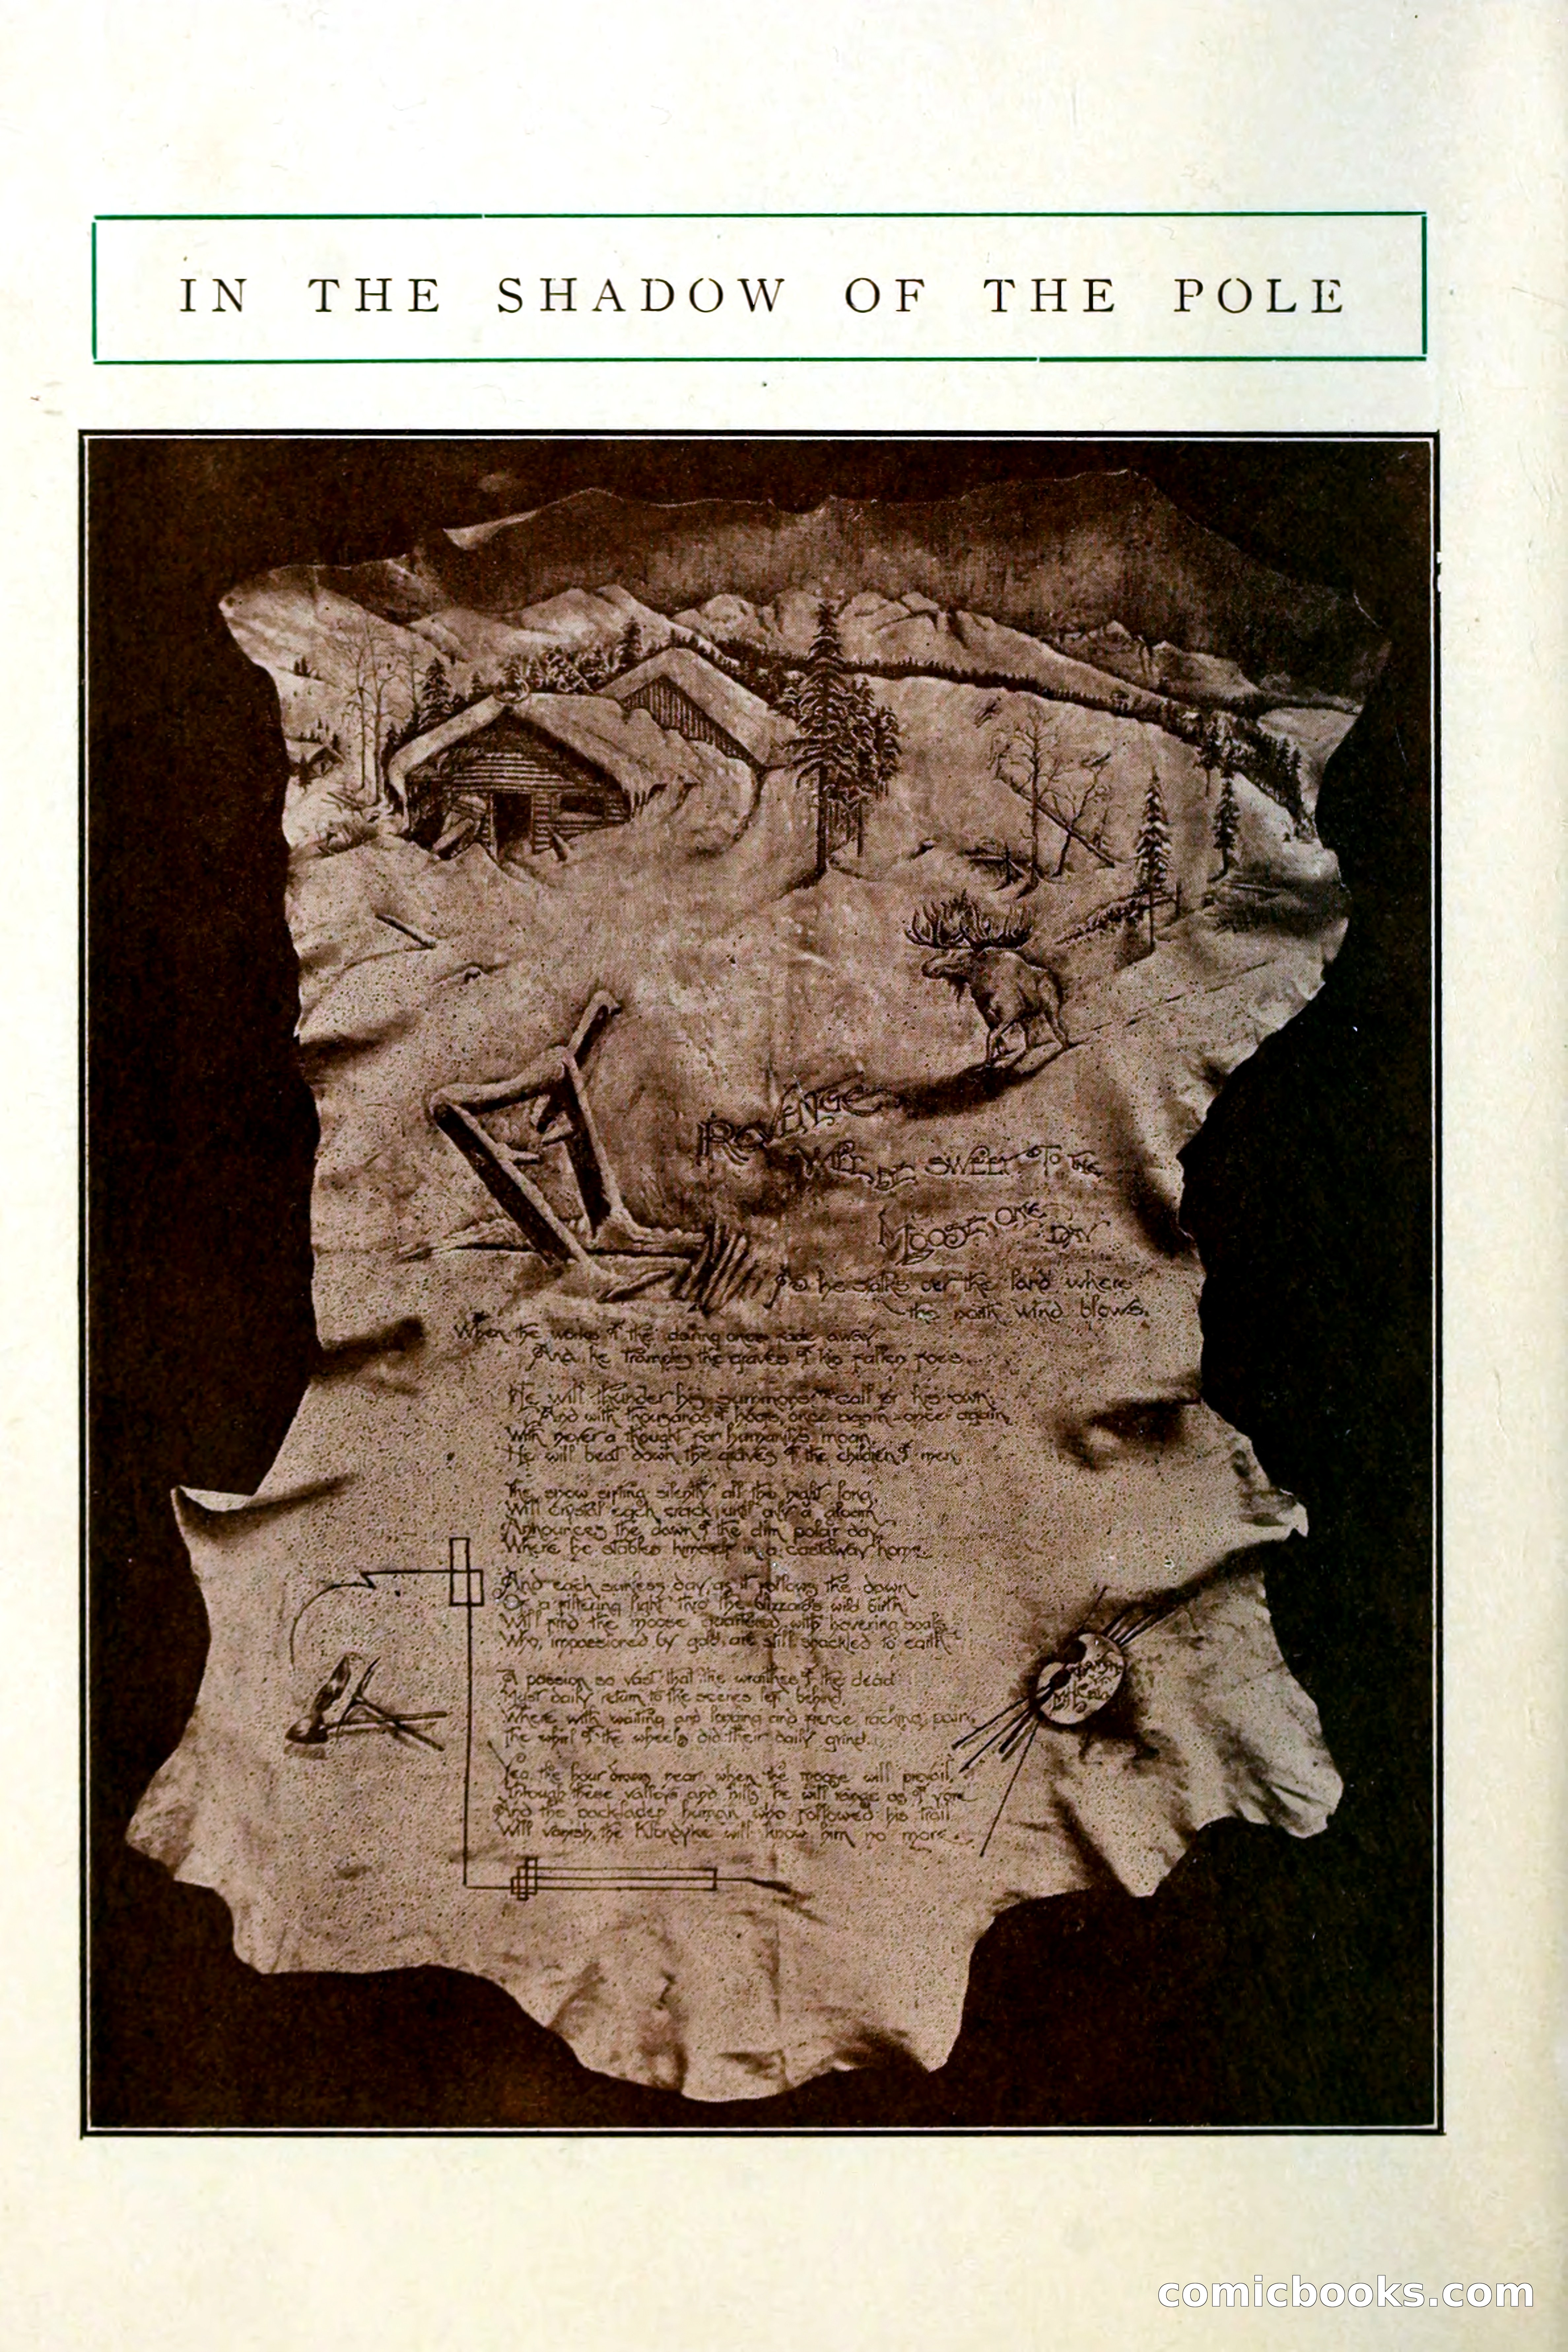 IN THE SHADOW OF THE POLE
REVENGE
WILL BE SWEET TO THE
MOOSE, ONE
DAY
As he stalks over the land where
the north wind blows.
When the works of the daring ones fade away
And he tramples the graves of his fallen foes.
He will thunder his summons & call for his own,
And with thousands of hoofs, once again - once again,
With never a thought for humanity's moan,
He will beat down the graves of the children of men.
The snow sifting silently all the night long,
Will crystal each crack, until only a gloam
Announces the dawn of the dim polar day,
Where he stables himself in a castaway home.
And each sunless day, as it follows the dawn
Of a filtering light thro' the blizzard's wild birth,
Will find the moose quartered with hovering souls
Who, impassioned by gold, are still shackled to earth.
A passion so vast that the wraithes of the dead
Must daily return to the scenes left behind,
Where with waiting and longing and fierce, racking pain,
The whirl of the wheels did their daily grind.
Yea, the hour draws near when the moose will prevail,
Through these valleys and hills he will range as of yore
And the packladen human who followed his trail
Will vanish, the Klondyke will know him no more.
comicbooks.com